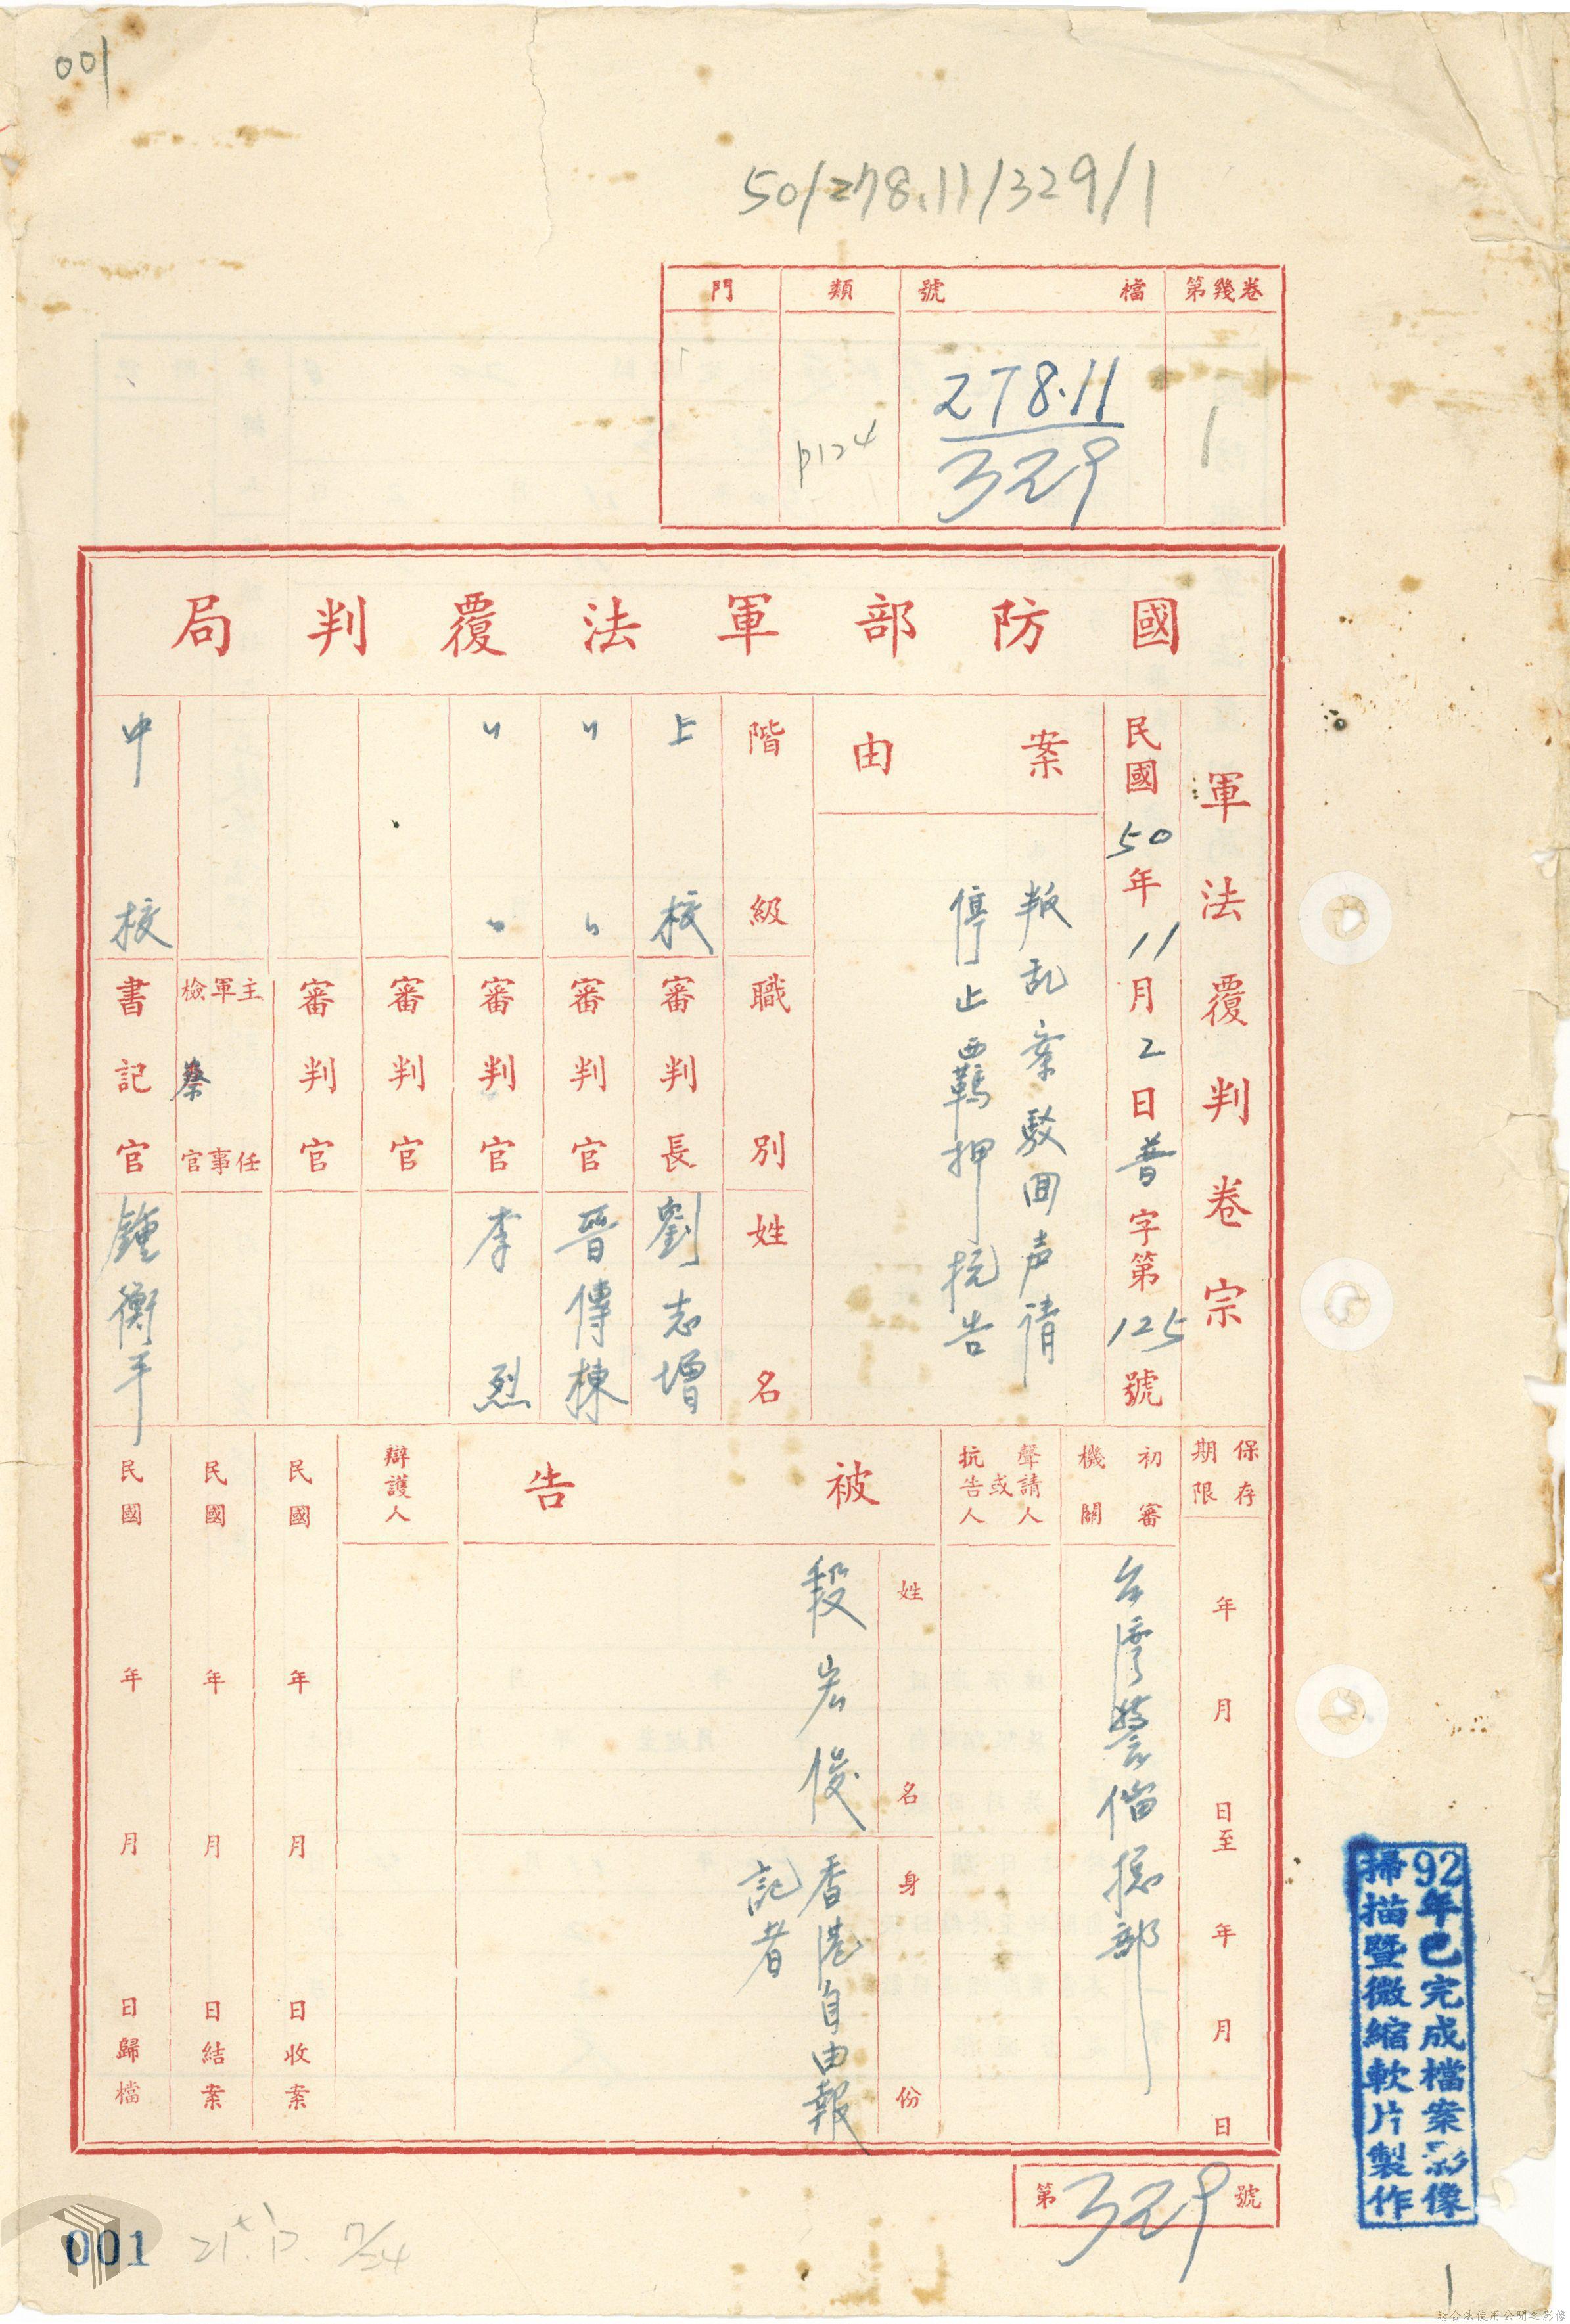 001
50/278.11/329/1
第幾卷
1
檔號
278.11
329
類
p124
門
國防部軍法覆判局
軍法覆判卷宗
民國50年11月2日普字第125號
案由
叛乱案駁回声請
停止羈押抗告
階級 職別 姓名
上校 審判長 劉志增
〃〃 審判官 晉傳棟
〃〃 審判官 李烈
審判官
審判官
主任軍事檢察官
中校 書記官 鍾衡平
保存期限
年月日至年月日
初審機關
台湾警备總部
聲請人或抗告人
被告
姓名
段宏俊
身份
香港自由報
記者
辯護人
民國年月日收案
民國年月日結案
民國年月日歸檔
第329號
92年已完成檔案影像
掃描暨微縮軟片製作
001
1
請合法使用公開之影像